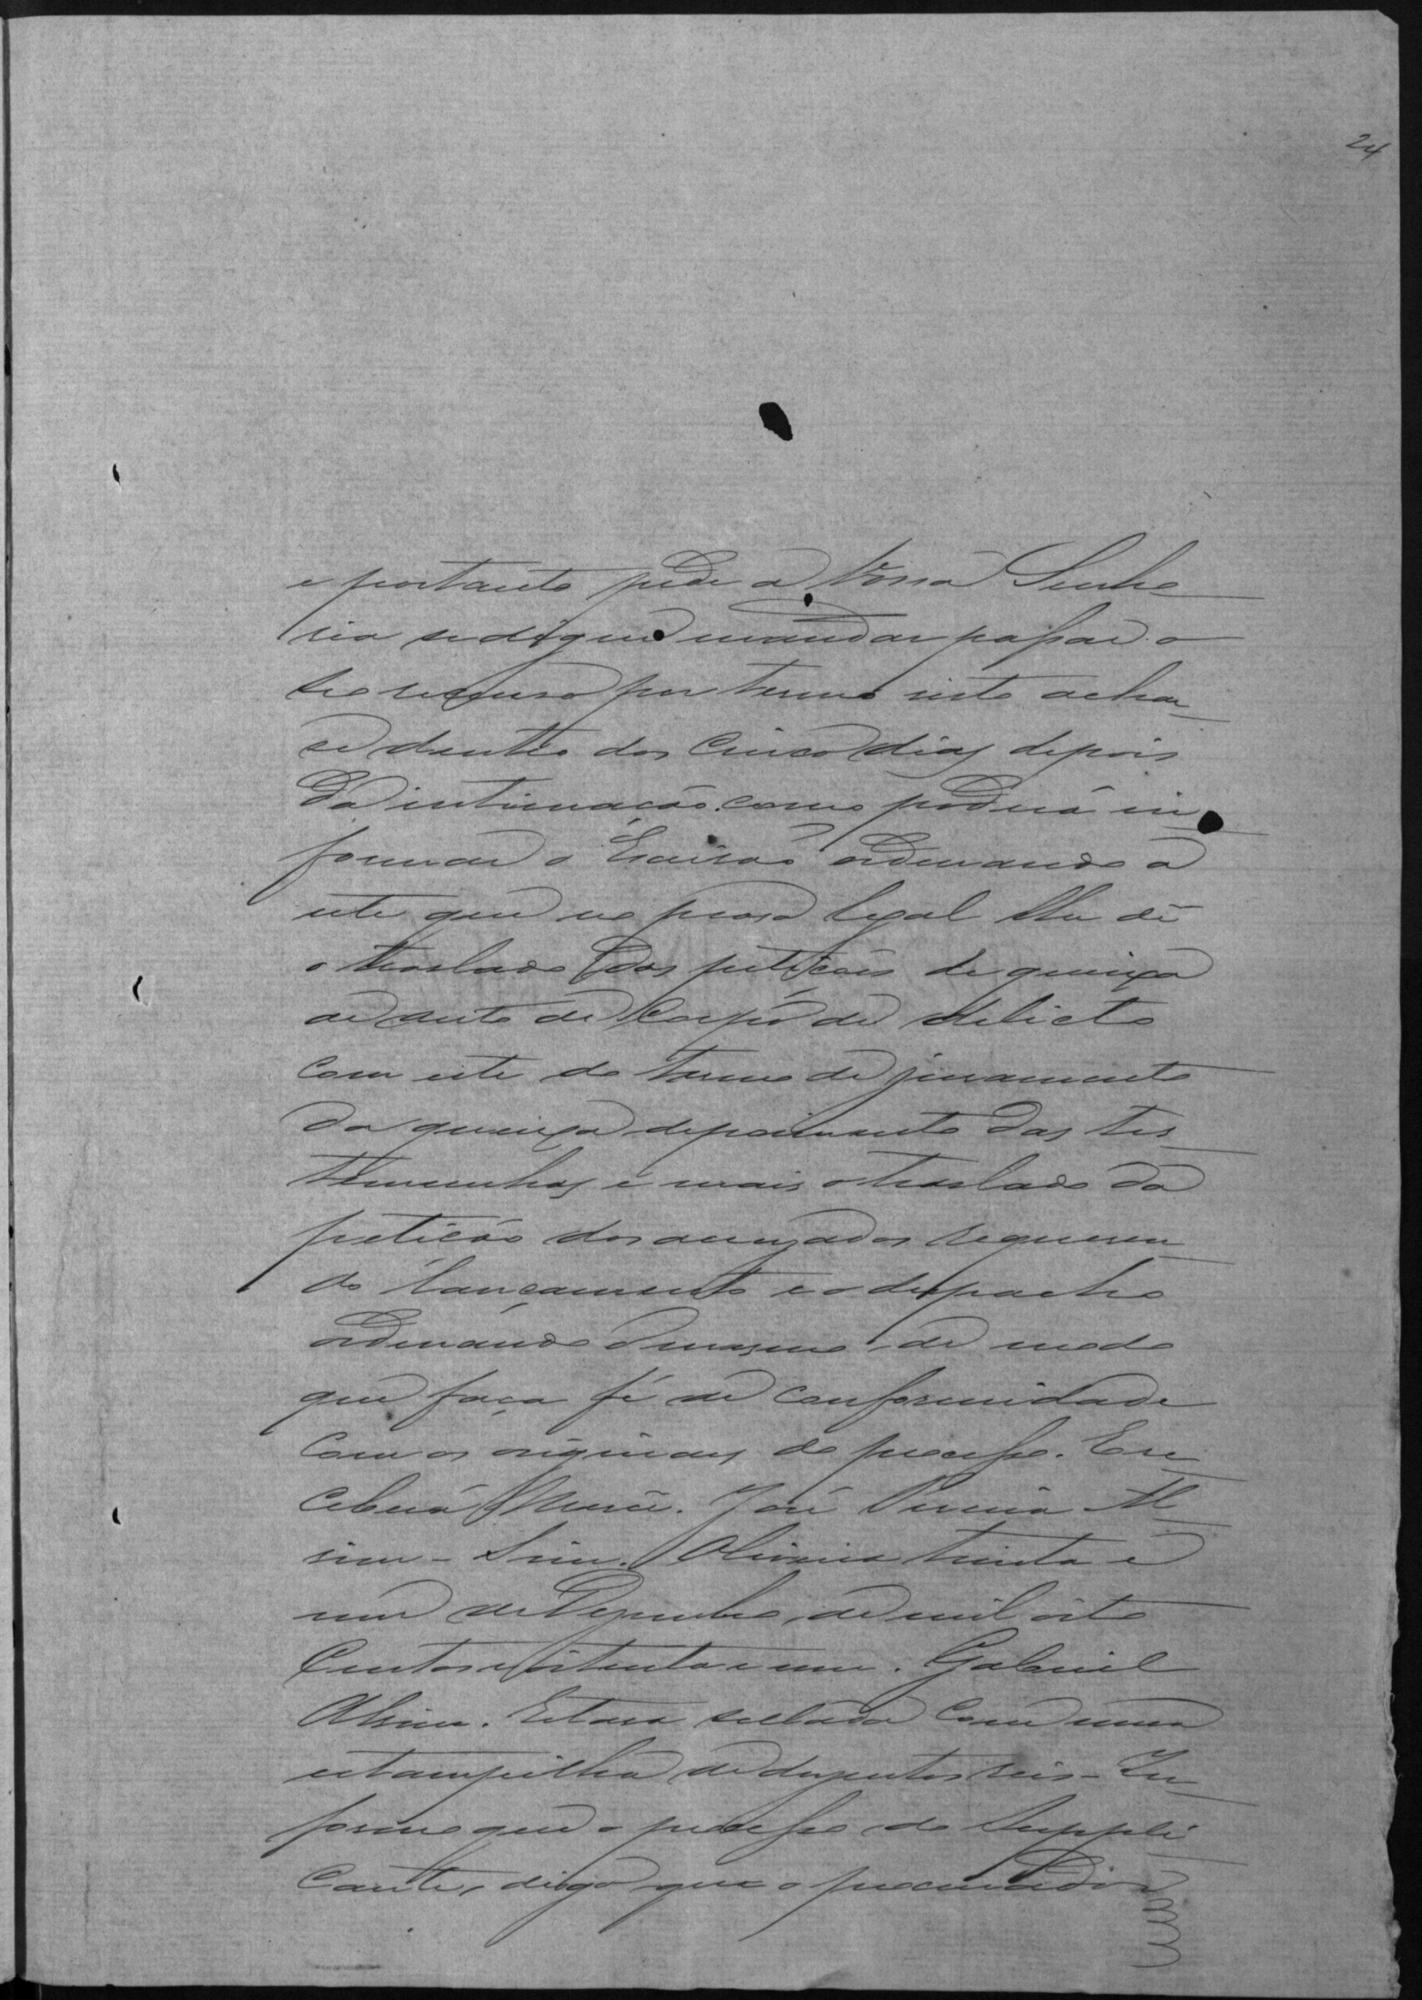 24
e portanto pede a Vossa Senho
ria se digne mandar passar o
seo recurso por termo visto achar
se dentro dos cinco dias depois
da intimação como poderá in
formar o Escrivão ordenando a
este que no praso legal lhe dê
o traslado das petições de queixa
de auto de Corpo de delicto
com este do termo de juramento
da queixa depoimento das tes
temunhas e mais o traslado da
petição dos accuzados requeren
do lançamento e o despacho
ordenando o mesmo, de modo
que faça fé de conformidade
com os originaes do processo. E re
ceberá Mercê. José Pereira Al
vim - Sim. Oliveira trinta e
um de Dezembro de mil oito
centos e oitenta e um. Gabriel
Alvim. Estava sellada com uma
estampilha de duzentos reis - In
forme que o processo do Suppli
cante, digo que o procurador